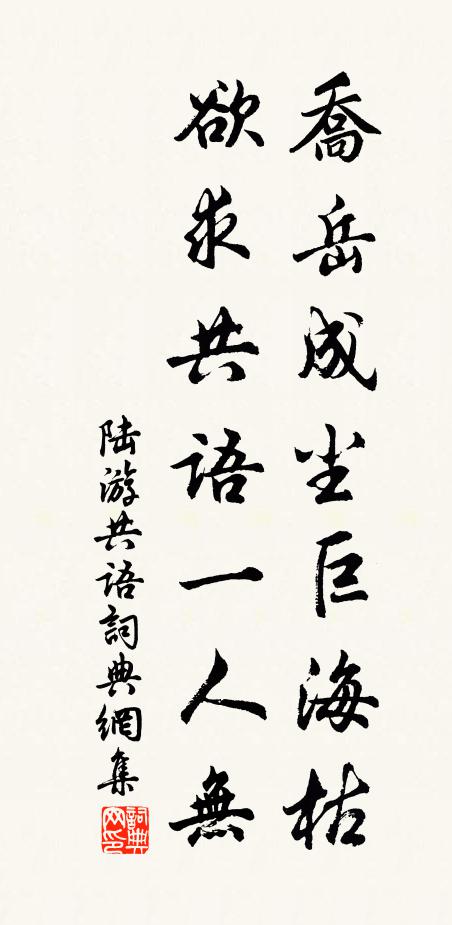 喬岳成尘巨海枯
欲求共語一人無
陆游共语詞典網集
詞典网印